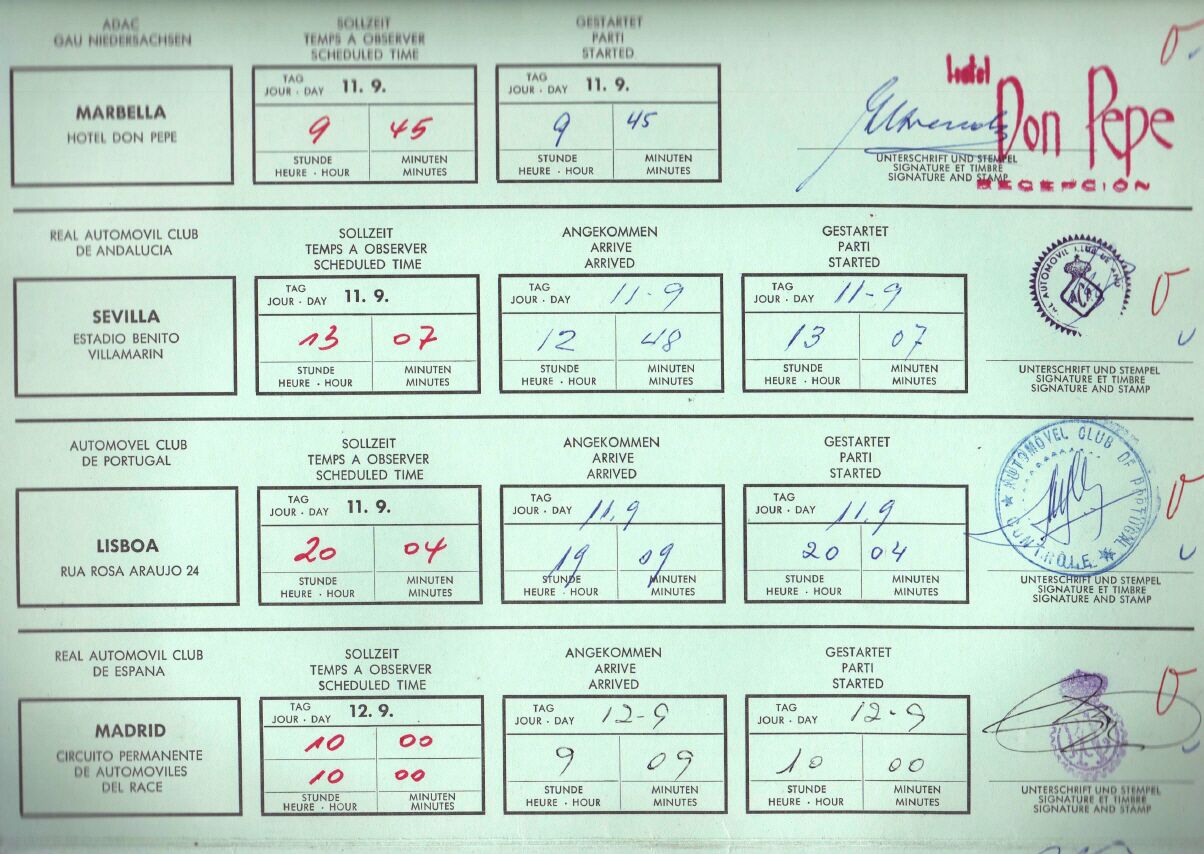 ADAC
GAU NIEDERSACHSEN
SOLLZEIT
TEMPS A OBSERVER
SCHEDULED TIME
GESTARTET
PARTI
STARTED
MARBELLA
HOTEL DON PEPE
TAG
JOUR · DAY 11. 9.
9 45
STUNDE MINUTEN
HEURE · HOUR MINUTES
TAG
JOUR · DAY 11. 9.
9 45
STUNDE MINUTEN
HEURE · HOUR MINUTES
Hotel
Don Pepe
RECEPCIÓN
UNTERSCHRIFT UND STEMPEL
SIGNATURE ET TIMBRE
SIGNATURE AND STAMP
REAL AUTOMOVIL CLUB
DE ANDALUCIA
SOLLZEIT
TEMPS A OBSERVER
SCHEDULED TIME
ANGEKOMMEN
ARRIVE
ARRIVED
GESTARTET
PARTI
STARTED
SEVILLA
ESTADIO BENITO
VILLAMARIN
TAG
JOUR · DAY 11. 9.
13 07
STUNDE MINUTEN
HEURE · HOUR MINUTES
TAG
JOUR · DAY 11-9
12 48
STUNDE MINUTEN
HEURE · HOUR MINUTES
TAG
JOUR · DAY 11-9
13 07
STUNDE MINUTEN
HEURE · HOUR MINUTES
AUTOMOVIL CLUB DE
UNTERSCHRIFT UND STEMPEL
SIGNATURE ET TIMBRE
SIGNATURE AND STAMP
AUTOMOVEL CLUB
DE PORTUGAL
SOLLZEIT
TEMPS A OBSERVER
SCHEDULED TIME
ANGEKOMMEN
ARRIVE
ARRIVED
GESTARTET
PARTI
STARTED
LISBOA
RUA ROSA ARAUJO 24
TAG
JOUR · DAY 11. 9.
20 04
STUNDE MINUTEN
HEURE · HOUR MINUTES
TAG
JOUR · DAY 11.9
19 09
STUNDE MINUTEN
HEURE · HOUR MINUTES
TAG
JOUR · DAY 11.9
20 04
STUNDE MINUTEN
HEURE · HOUR MINUTES
AUTOMÓVEL CLUB DE PORTUGAL
CONTRÔLE
UNTERSCHRIFT UND STEMPEL
SIGNATURE ET TIMBRE
SIGNATURE AND STAMP
REAL AUTOMOVIL CLUB
DE ESPANA
SOLLZEIT
TEMPS A OBSERVER
SCHEDULED TIME
ANGEKOMMEN
ARRIVE
ARRIVED
GESTARTET
PARTI
STARTED
MADRID
CIRCUITO PERMANENTE
DE AUTOMOVILES
DEL RACE
TAG
JOUR · DAY 12. 9.
10 00
10 00
STUNDE MINUTEN
HEURE · HOUR MINUTES
TAG
JOUR · DAY 12-9
9 09
STUNDE MINUTEN
HEURE · HOUR MINUTES
TAG
JOUR · DAY 12-9
10 00
STUNDE MINUTEN
HEURE · HOUR MINUTES
UNTERSCHRIFT UND STEMPEL
SIGNATURE ET TIMBRE
SIGNATURE AND STAMP